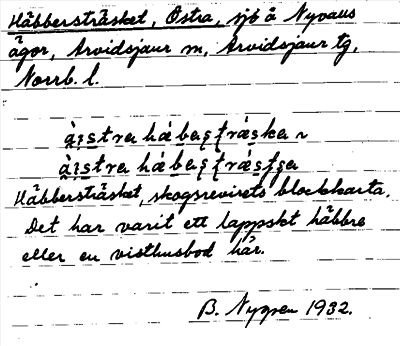 Håbbersträsket, Östra, sjö å Nyvaus
ägor, Arvidsjaur sn, Arvidsjaur tg,
Norrb. l.
Håbbersträsket, skogsrevirets blockkarta.
Det har varit ett lappskt håbbre
eller en visthusbod här.
B. Nygren 1932.